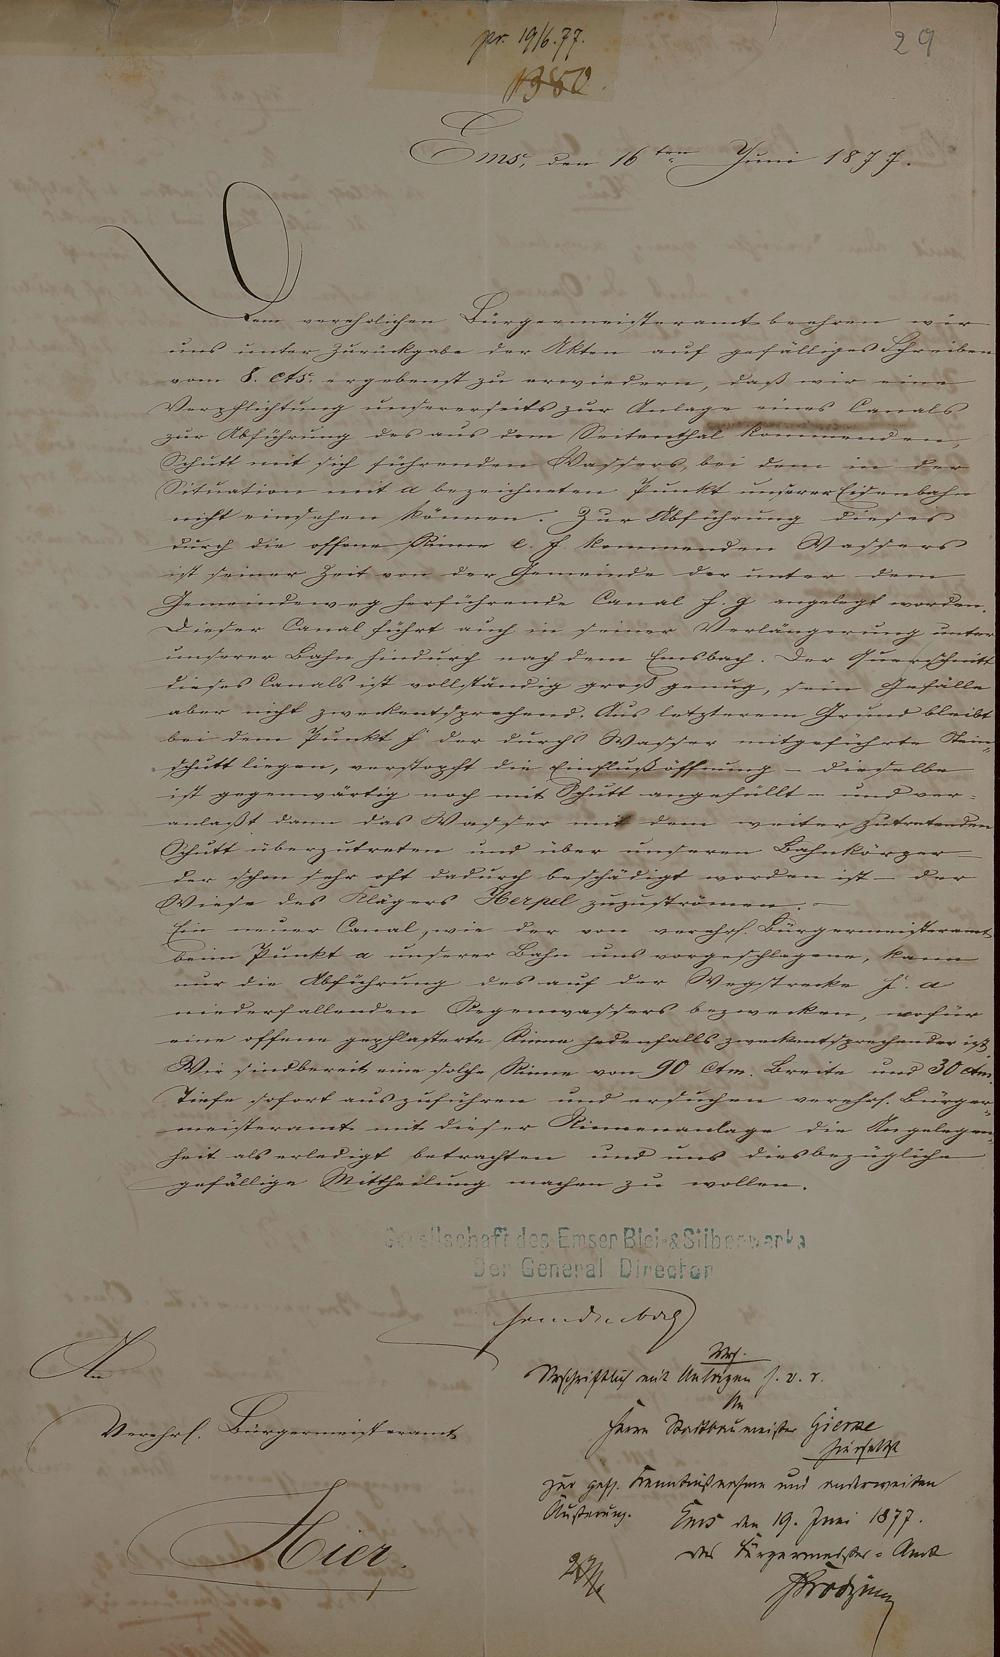 pr. 19/6.77.
1380.
29
Ems, den 16ten Juni 1877.
Dem verehrlichen Bürgermeisteramt beehren wir
uns unter Zurückgabe der Akten auf gefälliges Schreiben
vom 8. cts. ergebenst zu erwiedern, daß wir eine
Verpflichtung unsererseits zur Anlage eines Canals
zur Abführung des aus dem Seitenthal kommenden,
Schutt mit sich führenden Wassers, bei dem in der
Situation mit a bezeichneten Punkt unserer Eisenbahn
nicht einsehen können. Zur Abführung dieses
durch die offene Rinne e. f. kommenden Wassers
ist seiner Zeit von der Gemeinde der unter dem
Gemeindeweg herführende Canal f. g angelegt worden.
Dieser Canal führt auch in seiner Verlängerung unter
unserer Bahn hindurch nach dem Emsbach. Der Querschnitt
dieses Canals ist vollständig groß genug, sein Gefälle
aber nicht zweckentsprechend. Aus letzterem Grund bleibt
bei dem Punkt f der durchs Wasser mitgeführte Stein-
schutt liegen, verstopft die Einflußöffnung – dieselbe
ist gegenwärtig noch mit Schutt angefüllt – und ver-
anlaßt dann das Wasser mit dem weiter zutretenden
Schutt überzutreten und über unseren Bahnkörper –
der schon sehr oft dadurch beschädigt worden ist – der
Wiese des Klägers Herpel zuzuströmen. –
Ein neuer Canal, wie der von verehrl. Bürgermeisteramt
beim Punkt a unserer Bahn uns vorgeschlagene, kann
nur die Abführung des auf der Wegstrecke f. a
niederfallenden Regenwassers bezwecken, wofür
eine offene gepflasterte Rinne jedenfalls zweckentsprechender ist.
Wir sind bereit eine solche Rinne von 90 Ctm. Breite und 30 Ctm.
Tiefe sofort auszuführen und ersuchen verehrl. Bürger-
meisteramt mit dieser Rinnenanlage die Angelegen-
heit als erledigt betrachten und uns diesbezügliche
gefällige Mittheilung machen zu wollen.
Gesellschaft des Emser Blei- & Silberwerks
Der General Director
An
Verehrl. Bürgermeisteramt
Hier.
Urschriftlich mit Anlagen s. v. r.
An
Herrn Stadtbaumeister
hierselbst
zur gefl. Kenntnißnahme und anderweiten
Äußerung.
Ems den 19. Juni 1877.
Das Bürgermeister-Amt